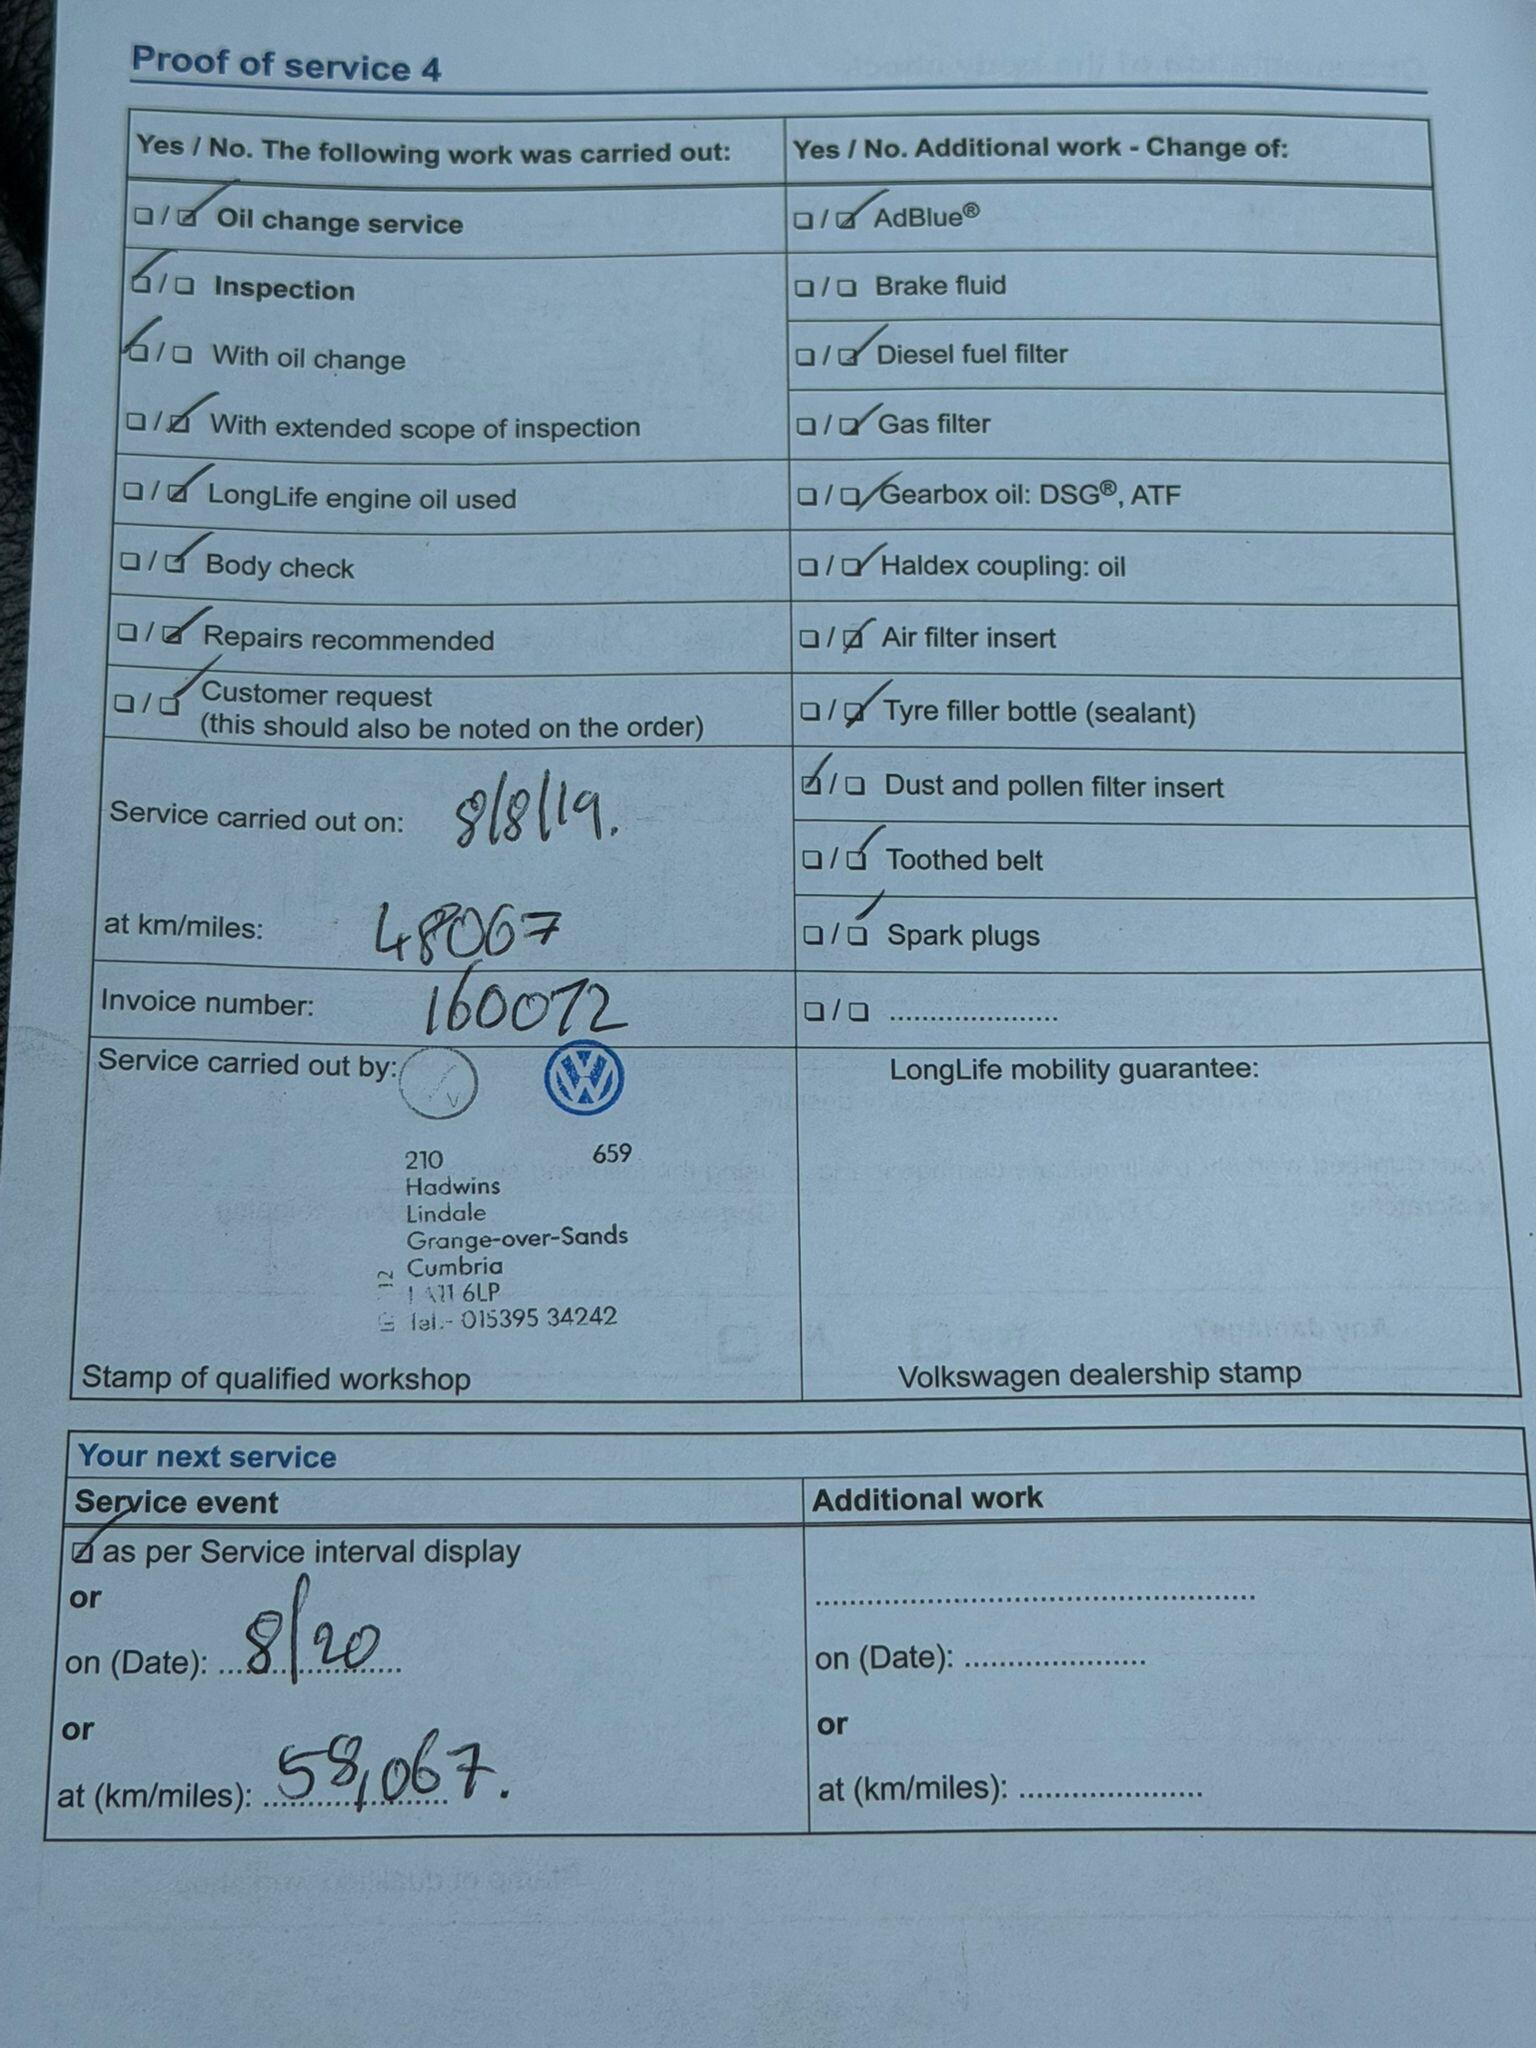 Proof of service 4
Yes / No. The following work was carried out:
Oil change service
Inspection
With oil change
With extended scope of inspection
LongLife engine oil used
Body check
Repairs recommended
Customer request
(this should also be noted on the order)
Service carried out on: 8/8/19.
at km/miles: 48067
Invoice number: 160072
Service carried out by:
210 659
Hadwins
Lindale
Grange-over-Sands
Cumbria
LA11 6LP
Tel.- 015395 34242
Stamp of qualified workshop
Yes / No. Additional work - Change of:
AdBlue®
Brake fluid
Diesel fuel filter
Gas filter
Gearbox oil: DSG®, ATF
Haldex coupling: oil
Air filter insert
Tyre filler bottle (sealant)
Dust and pollen filter insert
Toothed belt
Spark plugs
....................
LongLife mobility guarantee:
Volkswagen dealership stamp
Your next service
Service event
as per Service interval display
or
on (Date): 8/20
or
at (km/miles): 58,067.
Additional work
....................
on (Date): ....................
or
at (km/miles): ....................